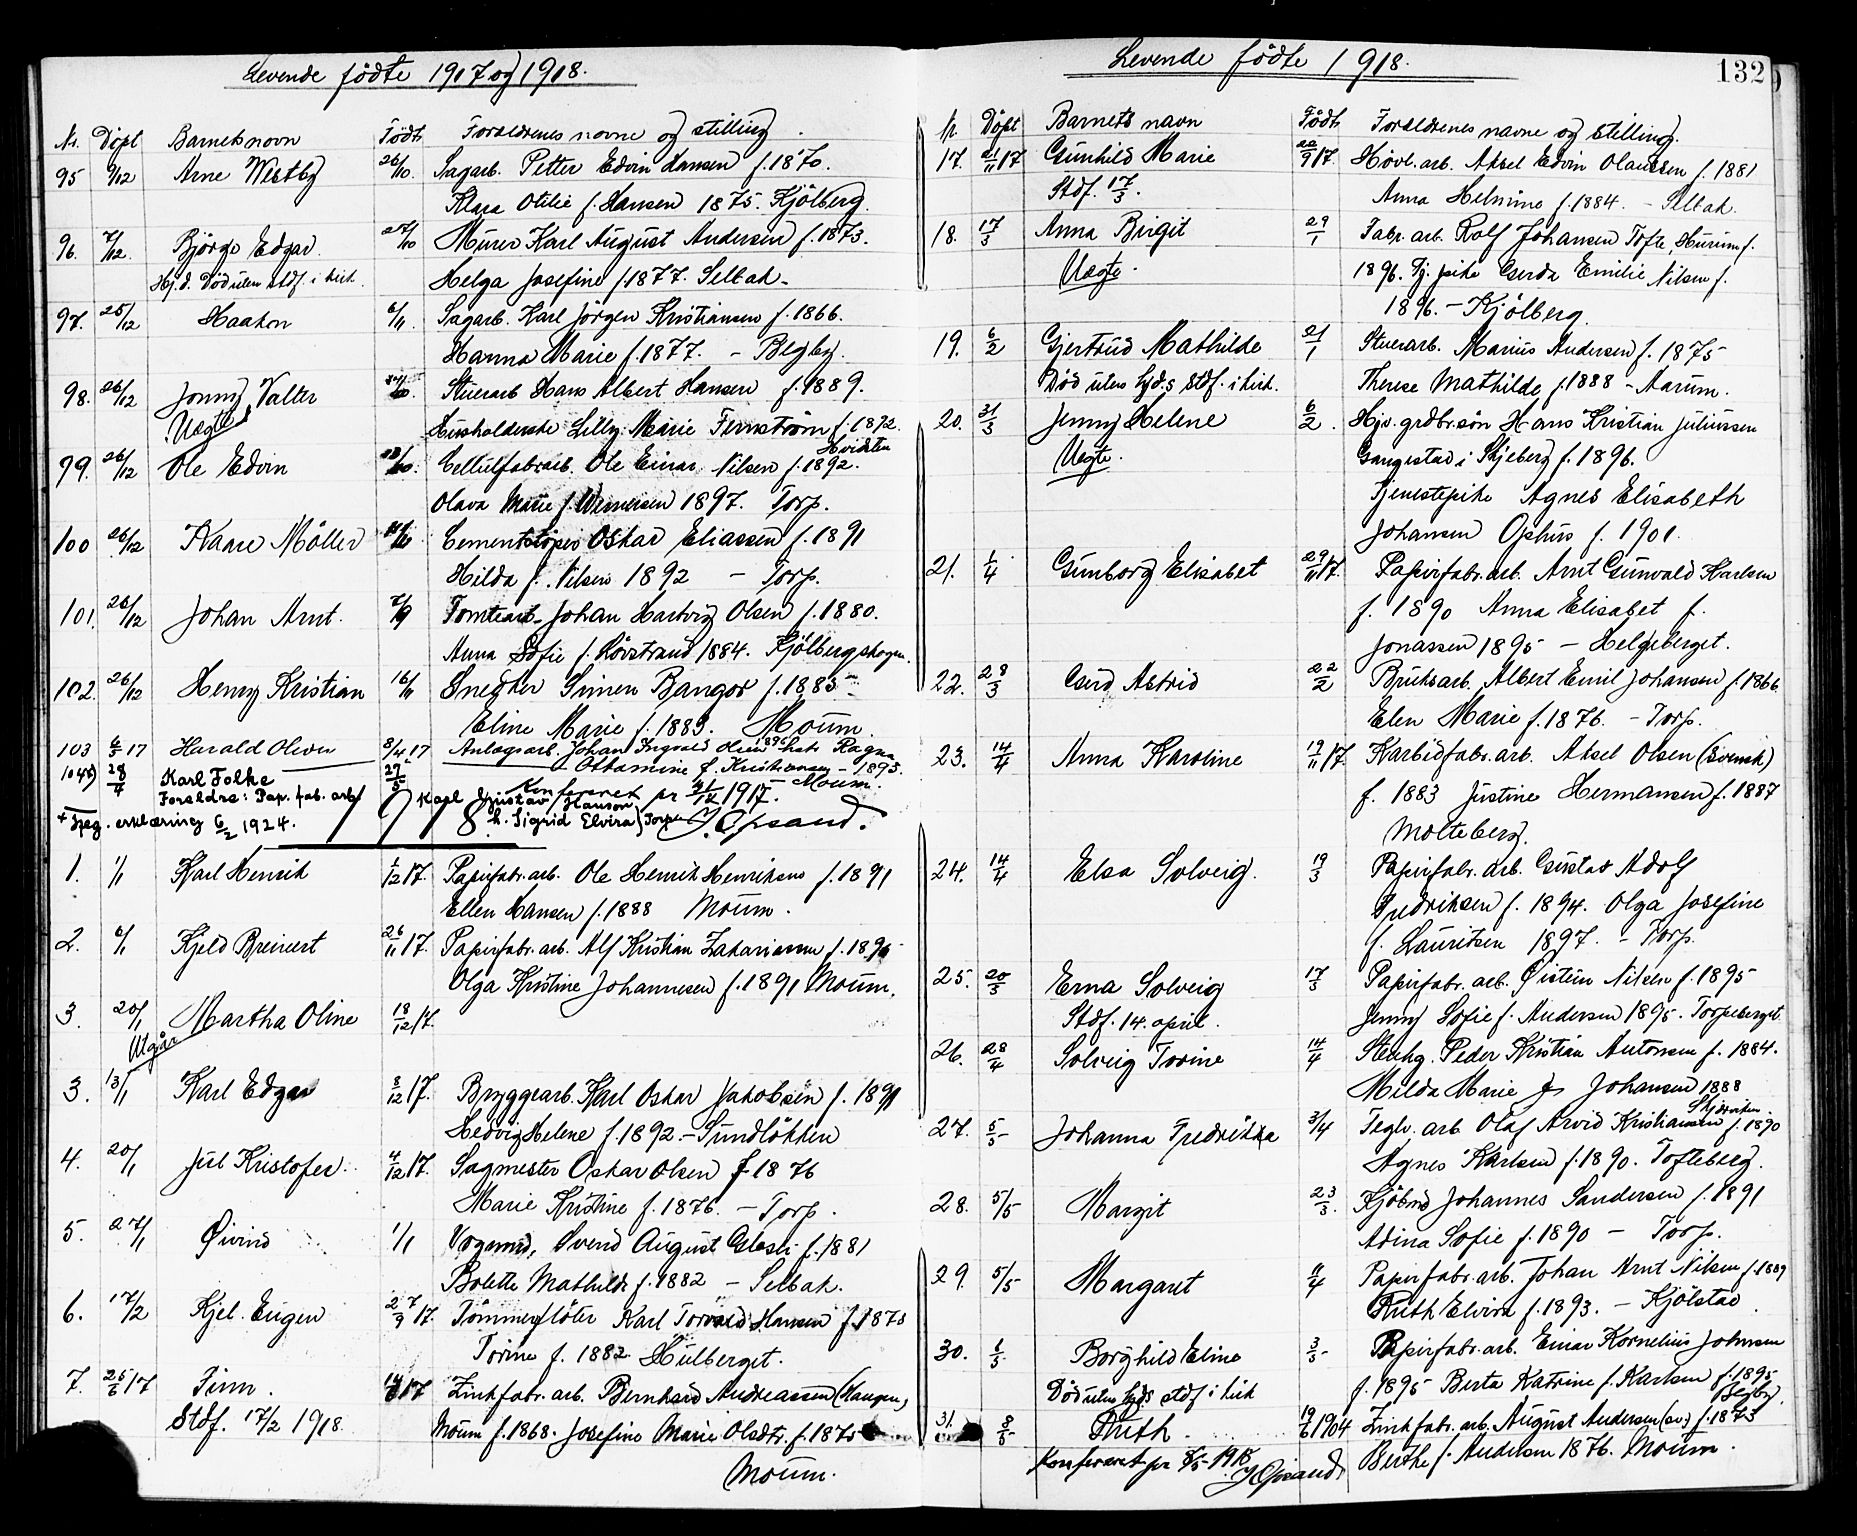 Levende födte 1917 og 1918.
Nr. Döpt Barnets navn Födt Forældrenes navne og stilling.
95 9/12 Arne Westby 26/10. Sagarb. Petter Edvin Hansen f. 1870.
Klara Otilie f. Hansen 1875. Kjölberg
96. 9/12. Björge Edgar. 27/10 Murer Karl August Andersen f. 1873.
Hj.d. Död uten stdf. i kirk. Helga Josefine f. 1877. Selbak.
97. 25/12 Haakon 6/11. Sagarb. Karl Jörgen Kristiansen f. 1866.
Hanna Marie f. 1877. - Begby.
98. 26/12 Jonny Valter Stuerarb Hans Albert Hansen f. 1889.
Uægte Husholderske Lilly Marie Fernström f. 1892.
Hvidsten
99. 26/12 Ole Edvin Cellulfabrarb. Ole Einar Nilsen f. 1892.
Olava Marie f. Wernersen 1897. Torp.
100 26/12 Kaare Möller Cementstöper Oskar Eliassen f. 1891
Hilda f. Nilsen 1892 - Torp.
101. 26/12 Johan Arnt. 7/9 Tomtearb. Johan Hartvig Olsen f. 1880.
Anna Sofie f. Lövstrand 1884. Kjölbergskogen.
102. 26/12 Henry Kristian 16/11 Snegker Simen Bangor f. 1885
Eline Marie f. 1889. Moum.
103 6/5 17 Harald Oliver 8/4 17 Anlægsarb. Johan Ingvald Olsen 1896 Hst. Ragna
Othamine f. Kristiansen - 1893.
104*) 28/4 Karl Folke 29/5 Moum.
Konfereret pr 31/12 1917.
Foreldre: Pap. fab. arb. Karl Gustav Hanson
h. Sigrid Elvira Torp J. Opsand.
* Jfag. erklæring 6/2 1924.
1918
1. 1/1 Karl Henrik 1/12 17. Papirfabr. arb. Ole Henrik Henriksen f. 1891
Ellen Hansen f. 1888 Moum.
2. 6/1 Kjeld Breinert 26/11 17. Papirfabr. arb. Alf Kristian Zakariassen f. 1896
Olga Kristine Johannesen f. 1891 Moum.
3. 20/1 Martha Oline 18/12 17.
Utgår
3. 13/1 Karl Edgar 8/12 17. Bryggearb. Karl Oskar Jakobsen f. 1891
Hedvig Helene f. 1892. - Sundlökken
4. 20/1 Jul Kristofer. 4/12 17. Sagmester Oskar Olsen f. 1876
Marie Kristine f. 1876. - Torp.
5. 27/1 Øivind 1/1 Vognmd. Svend August f. 1881
Bolette Mathilde f. 1882 - Selbak.
6. 17/2 Kjel Eugen 27/9 17. Tömmerflöter Karl Torvald Hansen f. 1878
Torine f. 1882 Hulberget.
7. 25/6 17 Finn. 17 Zinkfabr. arb. Bernhard Andreassen (Haugen)
Stdf. 17/2 1918. Moum f. 1868. Josefine Marie Olsdtr. f. 1875
Moum.
Levende födte 1918.
132
Nr Döpt Barnets navn Födt Forældrenes navne og stilling.
17. 21/11 17 Gunhild Marie 22/9 17. Hövl. arb. Aksel Edvin Olaussen f. 1881
Stdf. 17/3. Anna Helmine f. 1884. - Selbak.
18. 17/3 Anna Birgit 29/1 Fabr. arb. Rolf Johansen Tofte, Hurum f.
Uægte. 1896. Tj. pike Gerda Emilie Nilsen f.
1896. - Kjölberg.
19. 6/2 Gjertrud Mathilde 21/1 Stuerarb. Marius Andersen f. 1875
Död uten hjd.s stdf. i kirk. Therese Mathilde f. 1888 - Aarum.
20. 31/3 Jenny Helene 6/2. Hjv. grdbr.sön Hans Kristian Juliussen
Uægte. Gangestad i Skjeberg f. 1896.
Tjenestepike Agnes Elisabeth
Johansen Ophus f. 1901.
21. 1/4 Gunborg Elisabet 29/11 17. Papirfabr. arb. Arnt Gunvald Karlsen
f. 1890 Anna Elisabet f.
Jonassen 1895 - Helgeberget.
22. 28/3 Gerd Astrid 22/2 Bruksarb. Albert Emil Johansen f. 1866
Elen Marie f. 1876. - Torp.
23. 14/4 Anna Karoline 19/11 17. Karbidfabr. arb. Aksel Olsen (svensk)
f. 1883 Justine Hermansen f. 1887
Molteberg.
24. 14/4 Elsa Solveig. 19/3 Papirfabr. arb. Gustav Adolf
Fredriksen f. 1894. Olga Josefine
f. Lauritsen 1897. - Torp.
25. 20/3 Erna Solveig 17/3 Papirfabr. arb. Øistein Nilsen f. 1895
Stdf. 14. april. Jenny Sofie f. Andersen 1895. Torpeberget.
26. 28/4 Solveig Torine 14/4 Stenhg. Peder Kristian Antonsen f. 1884.
Milda Marie f. Johansen 1888
27. 5/5 Johanna Fredrikka 3/4 Teglv. arb. Olaf Arvid Kristiansen f. 1890
Agnes Karlsen f. 1890. Tofteberg.
28. 5/5 Margit 23/3. Kjöbmd Johannes Sandersen f. 1891
Adina Sofie f. 1890 - Torp.
29. 5/5 Margaret 11/4 Papirfabr. arb. Johan Arnt Nilsen f. 1889
Ruth Elvira f. 1893. - Kjölstad
30. 6/5 Borghild Eline 3/5 Papirfabr. arb. Einar Kornelius Johnsen
Död uten hjds stdf i kirk f. 1895 Berta Katrine f. Karlsen f. 1895
Begby.
31. 8/5 Ruth. 19/6 1904 Zinkfabr. arb. August Andersen (sv.) f. 1873
Konfereret pr 8/5-1918 J. Opsand. Berthe f. Andersen 1876. Moum.